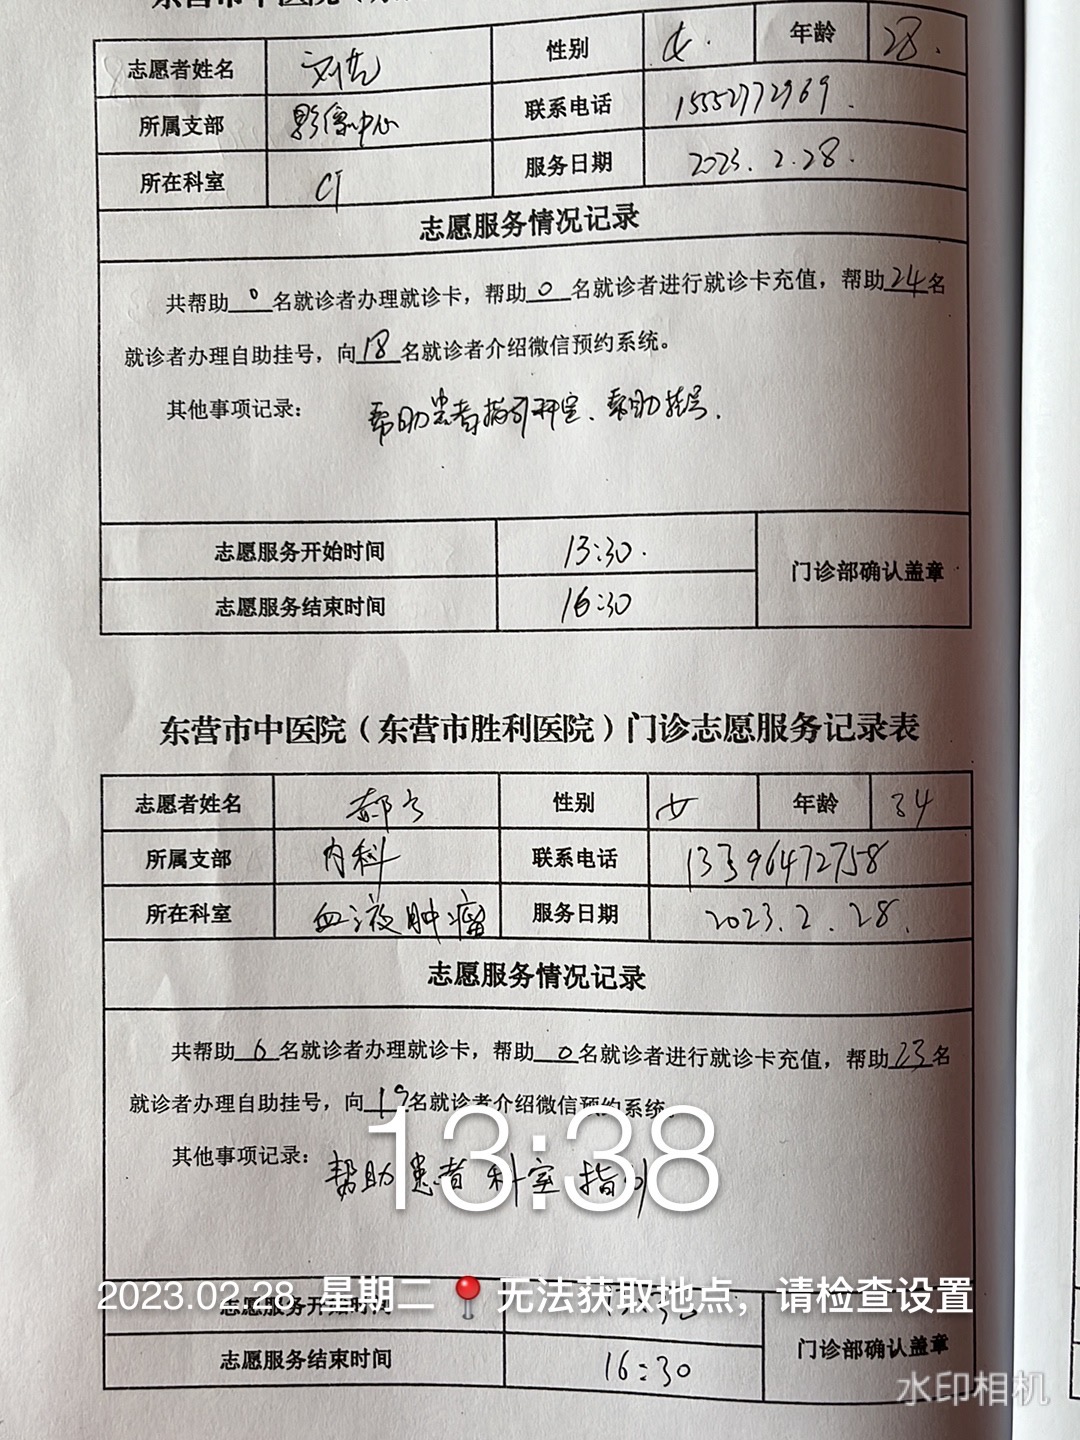 东营市中医院（东
志愿者姓名 性别 女. 年龄 28.
所属支部 影像中心 联系电话 15552772969.
所在科室 CT 服务日期 2023.2.28.
志愿服务情况记录
共帮助 0 名就诊者办理就诊卡，帮助 0 名就诊者进行就诊卡充值，帮助 24 名
就诊者办理自助挂号，向 18 名就诊者介绍微信预约系统。
其他事项记录： 帮助患者指引科室、帮助挂号.
志愿服务开始时间 13:30.
门诊部确认盖章
志愿服务结束时间 16:30
东营市中医院（东营市胜利医院）门诊志愿服务记录表
志愿者姓名 性别 女 年龄 34
所属支部 内科 联系电话 13396472758
所在科室 血液肿瘤 服务日期 2023.2.28.
志愿服务情况记录
共帮助 6 名就诊者办理就诊卡，帮助 0 名就诊者进行就诊卡充值，帮助 23 名
就诊者办理自助挂号，向 19 名就诊者介绍微信预约系统。
13:38
其他事项记录： 帮助患者科室指引
2023.02.28 星期二 📍 无法获取地点，请检查设置
志愿服务开始时间
门诊部确认盖章
志愿服务结束时间 16:30
水印相机